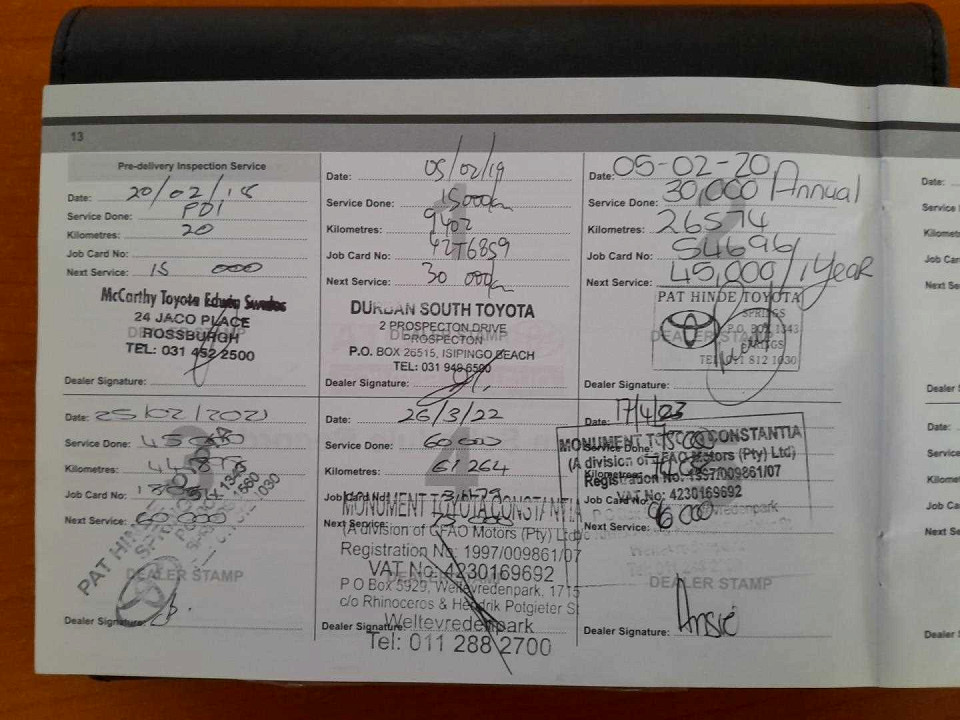 13
Pre-delivery Inspection Service
Date: 20/02/18
Service Done: PDI
Kilometres: 20
Job Card No:
Next Service: 15 000
McCarthy Toyota
24 JACO PLACE
ROSSBURGH
DEALER STAMP
TEL: 031 452 2500
Dealer Signature:
Date: 05/02/19
Service Done: 15000km
Kilometres: 9402
Job Card No: 42T6859
Next Service: 30 000km
DURBAN SOUTH TOYOTA
2 PROSPECTON DRIVE
PROSPECTON
DEALER STAMP
P.O. BOX 26515, ISIPINGO BEACH
TEL: 031 949 6500
Dealer Signature:
Date: 05-02-20
Service Done: 30,000 Annual
Kilometres: 26574
Job Card No: 54696
Next Service: 45,000/1 YEAR
PAT HINDE TOYOTA
SPRINGS
P.O. BOX 1343
DEALER STAMP
SPRINGS
TEL 011 812 1030
Dealer Signature:
3
Date: 25/02/2021
Service Done: 45 000
Kilometres:
Job Card No:
Next Service: 60 000
PAT HIN
DEALER STAMP
Dealer Signature:
4
Date: 26/3/22
Service Done: 60 000
Kilometres: 61 264
Job Card No:
Next Service:
MONUMENT TOYOTA CONSTANTIA
(A division of CFAO Motors (Pty) Ltd)
Registration No: 1997/009861/07
VAT No: 4230169692
P O Box 5929, Weltevredenpark, 1715
c/o Rhinoceros & Hendrik Potgieter St
Weltevredenpark
Tel: 011 288 2700
Dealer Signature:
Date: 17/4/23
Service Done:
MONUMENT TOYOTA CONSTANTIA
(A division of CFAO Motors (Pty) Ltd)
Kilometres:
Registration No: 1997/009861/07
Job Card No:
VAT No: 4230169692
Next Service:
Weltevredenpark
DEALER STAMP
Dealer Signature: Ansie
Date:
Service
Kilomet
Job Car
Next Se
Dealer S
Date:
Service
Kilomet
Job Car
Next Se
Dealer S